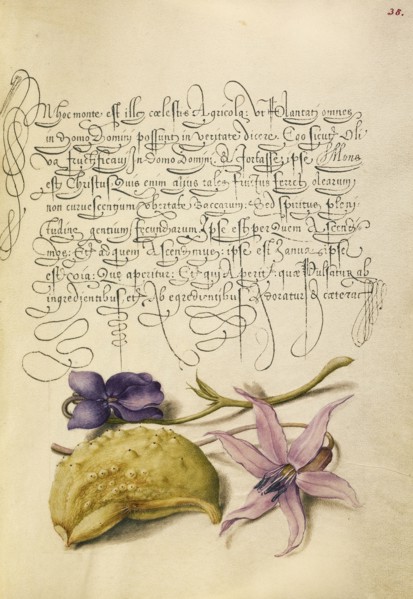 38.
hoc monte est ille cœlestis Agricola: Vt Plantati omnes
in domo Domini possunt in veritate dicere. Ego sicut Oli
va fructificavi In domo Domini. & fortasse ipse Mons
est Christus. Quis enim alius tales fructus ferret olearum
non curvescentium vbertate Baccarum: Sed spiritus pleni
tudine gentium fecundarum. Ipse est per quem Ascendi
mus: Et ad quem Ascendimus: ipse est Ianua: ipse
est via: Que aperitur: Et qui Aperit: quæ Pulsatur ab
ingredientibus, et Ab egredientibus Adoratur & cæterae